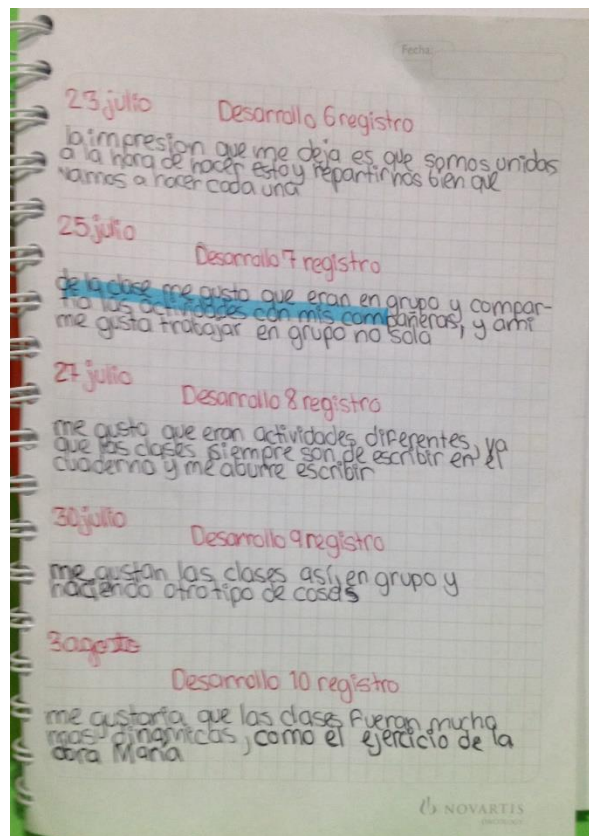 Fecha:
23 julio Desarrollo 6 registro
la impresion que me deja es que somos unidas
a la hora de hacer esto y repartirnos bien que
vamos a hacer cada una
25 julio
Desarrollo 7 registro
de la clase me gusto que eran en grupo y compar-
tio las actividades con mis compañeras, y ami
me gusta trabajar en grupo no sola
27 julio
Desarrollo 8 registro
me gusto que eran actividades diferentes, ya
que las clases siempre son de escribir en el
cuaderno y me aburre escribir
30 julio
Desarrollo 9 registro
me gustan las clases así, en grupo y
haciendo otro tipo de cosas
3 agosto
Desarrollo 10 registro
me gustaría que las clases fueran mucha
mas dinamicas, como el ejercicio de la
obra María
NOVARTIS
ONCOLOGY